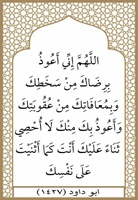 اللَّهُمَّ إِنِّي أَعُوذُ
بِرِضَاكَ مِنْ سَخَطِكَ
وَبِمُعَافَاتِكَ مِنْ عُقُوبَتِكَ
وَأَعُوذُ بِكَ مِنْكَ لَا أُحْصِي
ثَنَاءً عَلَيْكَ أَنْتَ كَمَا أَثْنَيْتَ
عَلَى نَفْسِكَ
ابو داود (١٤٢٧)